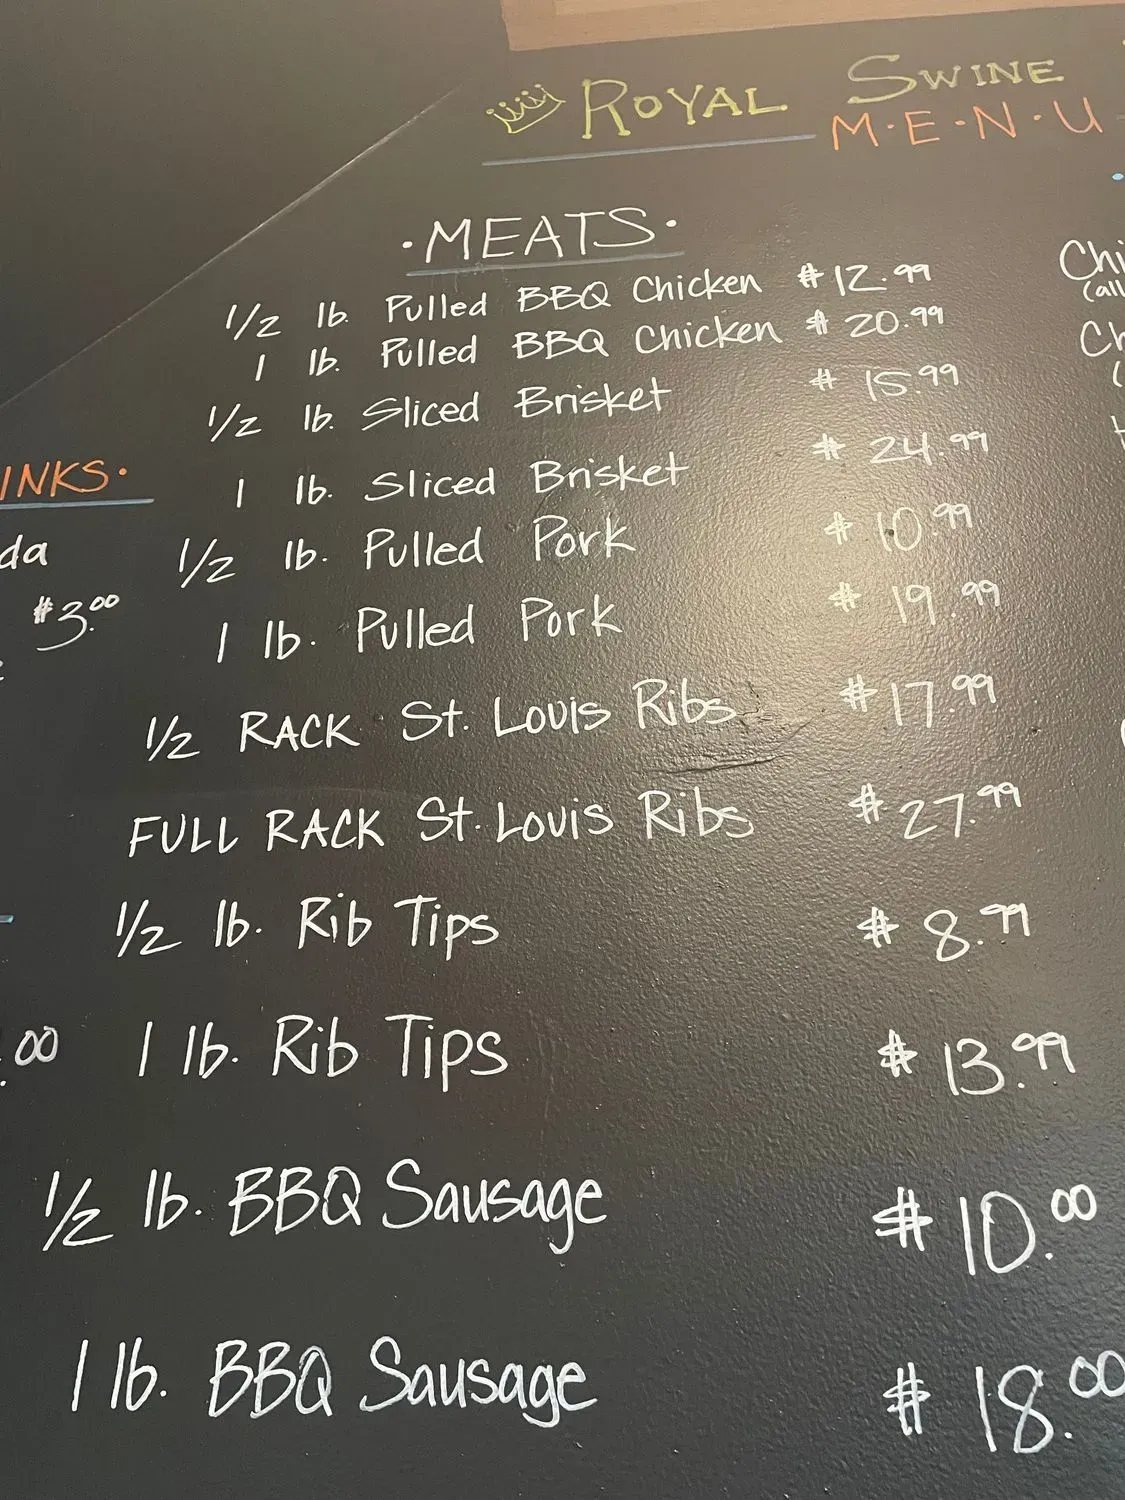 ROYAL SWINE
M·E·N·U
·MEATS·
1/2 lb. Pulled BBQ Chicken $12.99
1 lb. Pulled BBQ Chicken $20.99
1/2 lb. Sliced Brisket $15.99
1 lb. Sliced Brisket $24.99
1/2 lb. Pulled Pork $10.99
1 lb. Pulled Pork $19.99
1/2 RACK St. Louis Ribs $17.99
FULL RACK St. Louis Ribs $27.99
1/2 lb. Rib Tips $8.99
1 lb. Rib Tips $13.99
1/2 lb. BBQ Sausage $10.00
1 lb. BBQ Sausage $18.00
INKS·
da
$3.00
.00
Chi
(all
Ch
(